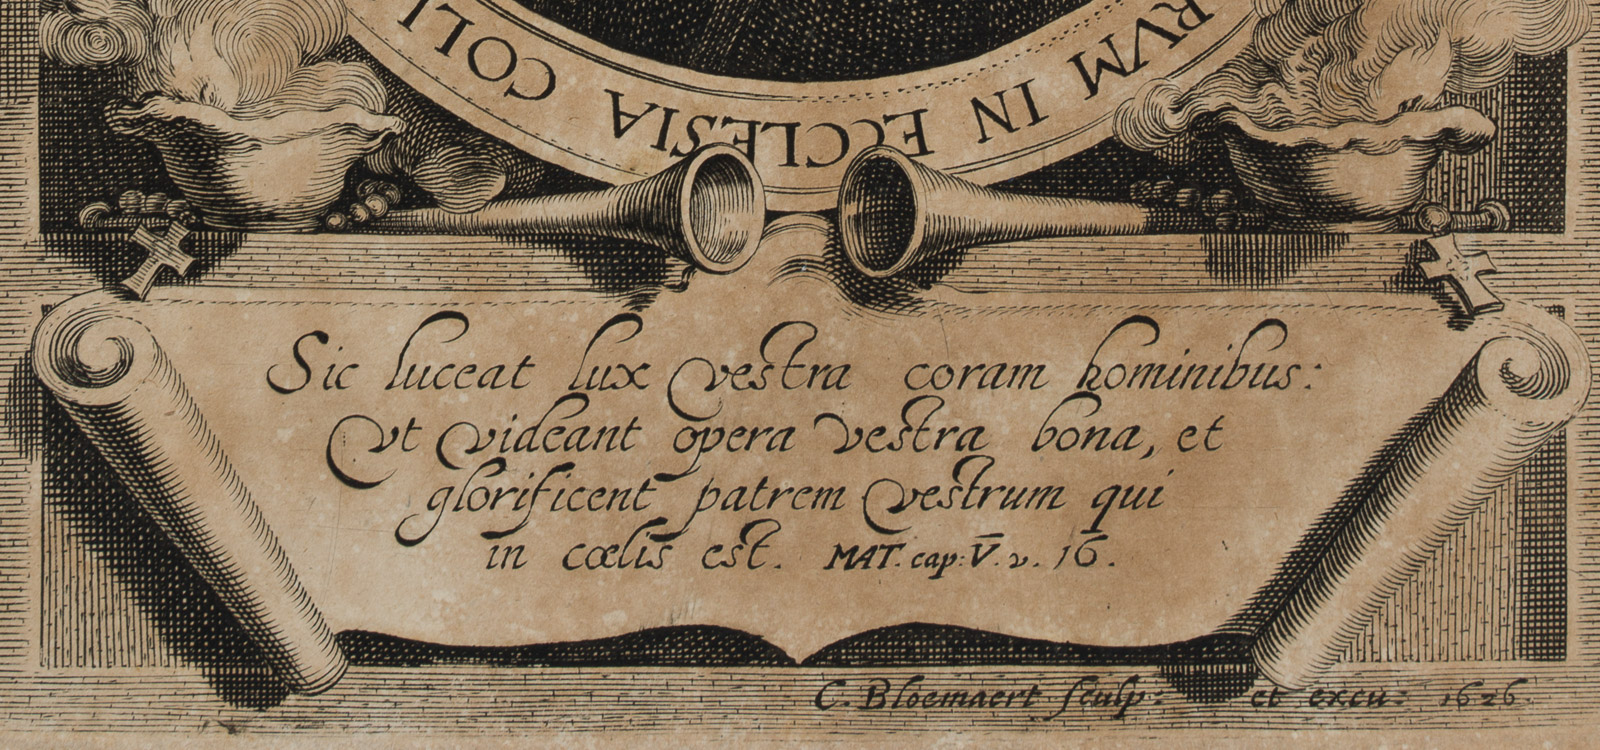 RVM IN ECCLESIA COLI
Sic luceat lux vestra coram hominibus:
Vt videant opera vestra bona, et
glorificent patrem vestrum qui
in cœlis est. MAT. cap: V. v. 16.
C. Bloemaert sculp: et excu: 1626.